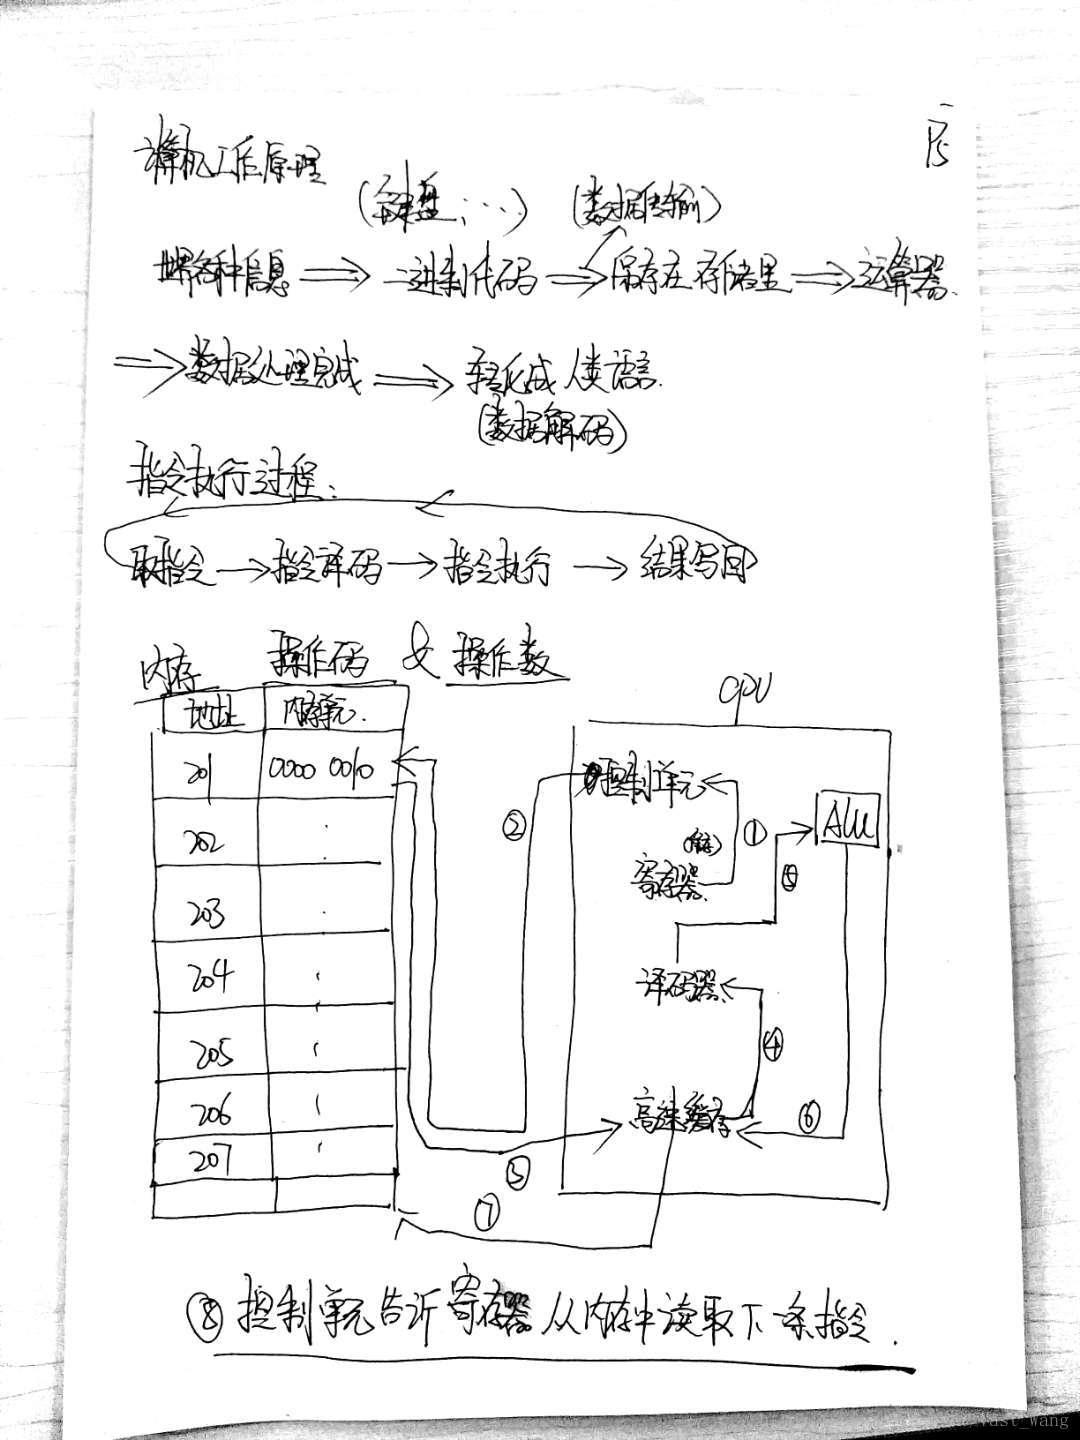 计算机工作原理
P5
(键盘, ...) (数据传输)
世界各种信息 ⇒ 二进制代码 ⇒ 保存在存储里 ⇒ 运算器.
⇒ 数据处理完成 ⇒ 转化成人类语言.
(数据解码)
指令执行过程:
取指令 → 指令译码 → 指令执行 → 结果写回
内存 操作码 & 操作数
CPU
地址 内存单元.
201 0000 0010
202
203
204
205
206
207
控制单元
ALU
寄存器
译码器
高速缓存
① ② ③ ④ ⑤ ⑥ ⑦
⑧ 控制单元告诉寄存器从内存中读取下一条指令.
wust_wang